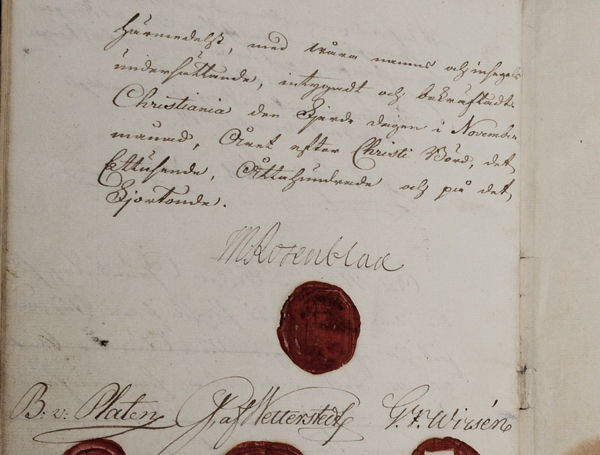 härmedelst, med våra namns och insegels
undersättande, intygadt och bekräftadt.
Christiania den Fjerde dagen i November
månad, Året efter Christi Börd, det
Ettusende, Åttahundrede och på det,
Fjortonde.
M Rosenblad
B: v: Platen G. af Wetterstedt G. F. Wirsén